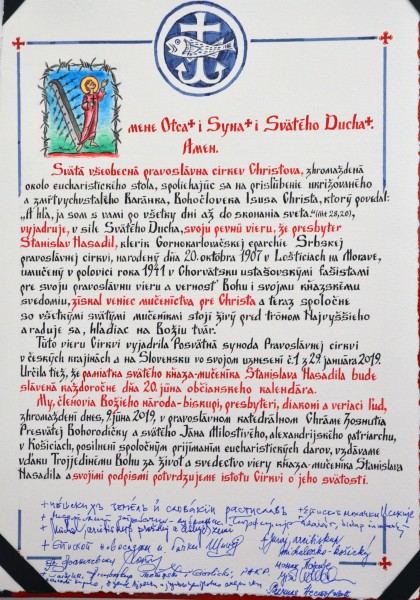 mene Otca+ i Syna+ i Svätého Ducha+.
Amen.
Svätá všeobecná pravoslávna cirkev Christova, zhromaždená
okolo eucharistického stola, spoliehajúc sa na prisľúbenie ukrižovaného
a zmŕtvychvstalého Baránka, Bohočloveka Isusa Christa, ktorý povedal:
"A hľa, ja som s vami po všetky dni až do skonania sveta." (Mt 28,20),
vyjadruje, v sile Svätého Ducha, svoju pevnú vieru, že presbyter
Stanislav Hasadil, klerik Gornokarlovačkej eparchie Srbskej
pravoslávnej cirkvi, narodený dňa 20. októbra 1907 v Lošticiach na Morave,
umučený v polovici roka 1941 v Chorvátsku ustašovskými fašistami
pre svoju pravoslávnu vieru a vernosť Bohu i svojmu kňazskému
svedomiu, získal veniec mučeníctva pre Christa a teraz spoločne
so všetkými svätými mučeníkmi stojí živý pred trónom Najvyššieho
a raduje sa, hľadiac na Božiu tvár.
Túto vieru Cirkvi vyjadrila Posvätná synoda Pravoslávnej cirkvi
v českých krajinách a na Slovensku vo svojom uznesení č.1 z 29. januára 2019.
Určila tiež, že pamiatka svätého kňaza-mučeníka Stanislava Hasadila bude
slávená každoročne dňa 20. júna občianskeho kalendára.
My, členovia Božieho národa-biskupi, presbyteri, diakoni a veriaci ľud,
zhromaždení dnes, 9. júna 2019, v pravoslávnom katedrálnom Chráme Zosnutia
Presvätej Bohorodičky a svätého Jána Milostivého, alexandrijského patriarchu,
v Košiciach, posilnení spoločným prijímaním eucharistických darov, vzdávame
vďaku Trojjedinému Bohu za život a svedectvo viery kňaza-mučeníka Stanislava
Hasadila a svojimi podpismi potvrdzujeme istotu Cirkvi o jeho svätosti.